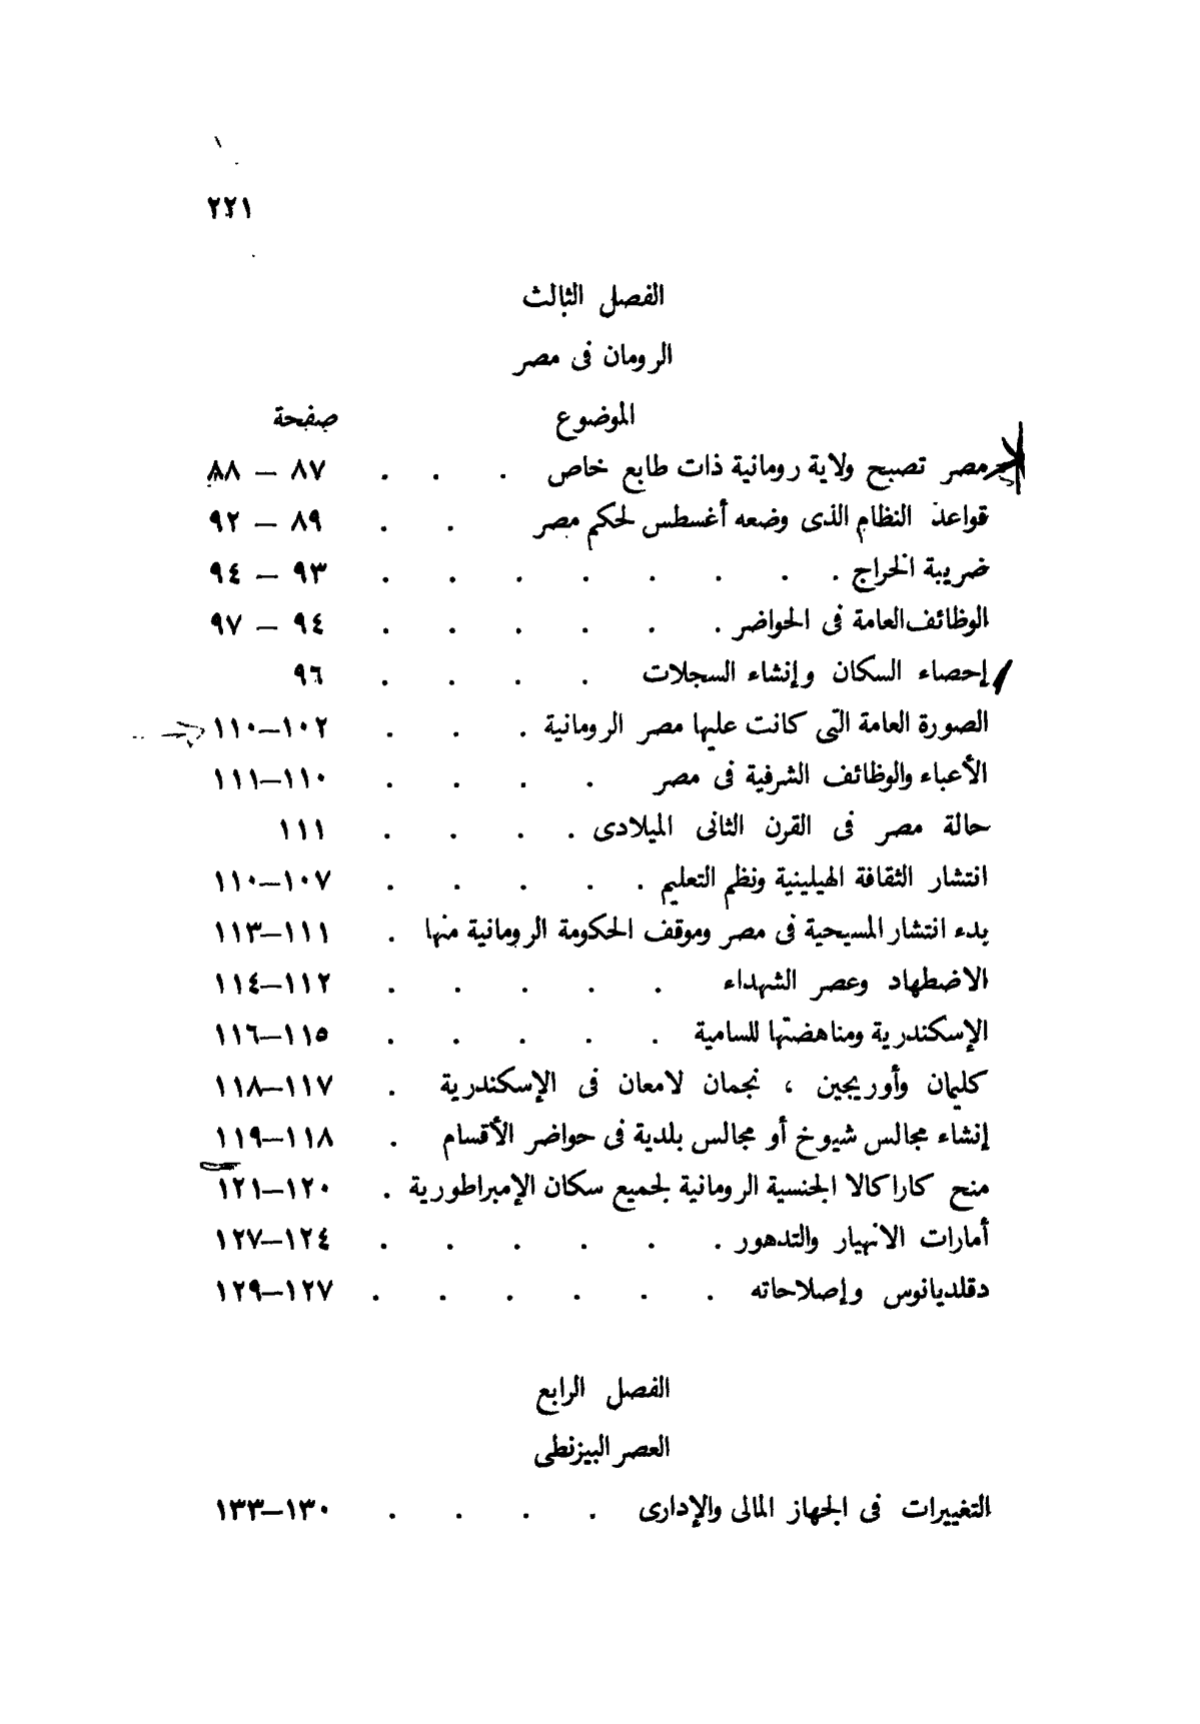 ٢٢١
الفصل الثالث
الرومان فى مصر
الموضوع صفحة
مصر تصبح ولاية رومانية ذات طابع خاص . . . ٨٧ — ٨٨
قواعد النظام الذى وضعه أغسطس لحكم مصر . . ٨٩ — ٩٢
ضريبة الخراج . . . . . . . . ٩٣ — ٩٤
الوظائف العامة فى الحواضر . . . . . . ٩٤ — ٩٧
إحصاء السكان وإنشاء السجلات . . . . ٩٦
الصورة العامة التى كانت عليها مصر الرومانية . . . ١٠٢—١١٠
الأعباء والوظائف الشرفية فى مصر . . . . ١١٠—١١١
حالة مصر فى القرن الثانى الميلادى . . . . ١١١
انتشار الثقافة الهيلينية ونظم التعليم . . . . . ١٠٧—١١٠
بدء انتشار المسيحية فى مصر وموقف الحكومة الرومانية منها . ١١١—١١٣
الاضطهاد وعصر الشهداء . . . . . ١١٢—١١٤
الإسكندرية ومناهضتها للسامية . . . . . ١١٥—١١٦
كليمان وأوريجين ، نجمان لامعان فى الإسكندرية . ١١٧—١١٨
إنشاء مجالس شيوخ أو مجالس بلدية فى حواضر الأقسام . ١١٨—١١٩
منح كاراكالا الجنسية الرومانية لجميع سكان الإمبراطورية . ١٢٠—١٢١
أمارات الانهيار والتدهور . . . . . . ١٢٤—١٢٧
دقلديانوس وإصلاحاته . . . . . . ١٢٧—١٢٩
الفصل الرابع
العصر البيزنطى
التغييرات فى الجهاز المالى والإدارى . . . . ١٣٠—١٣٣